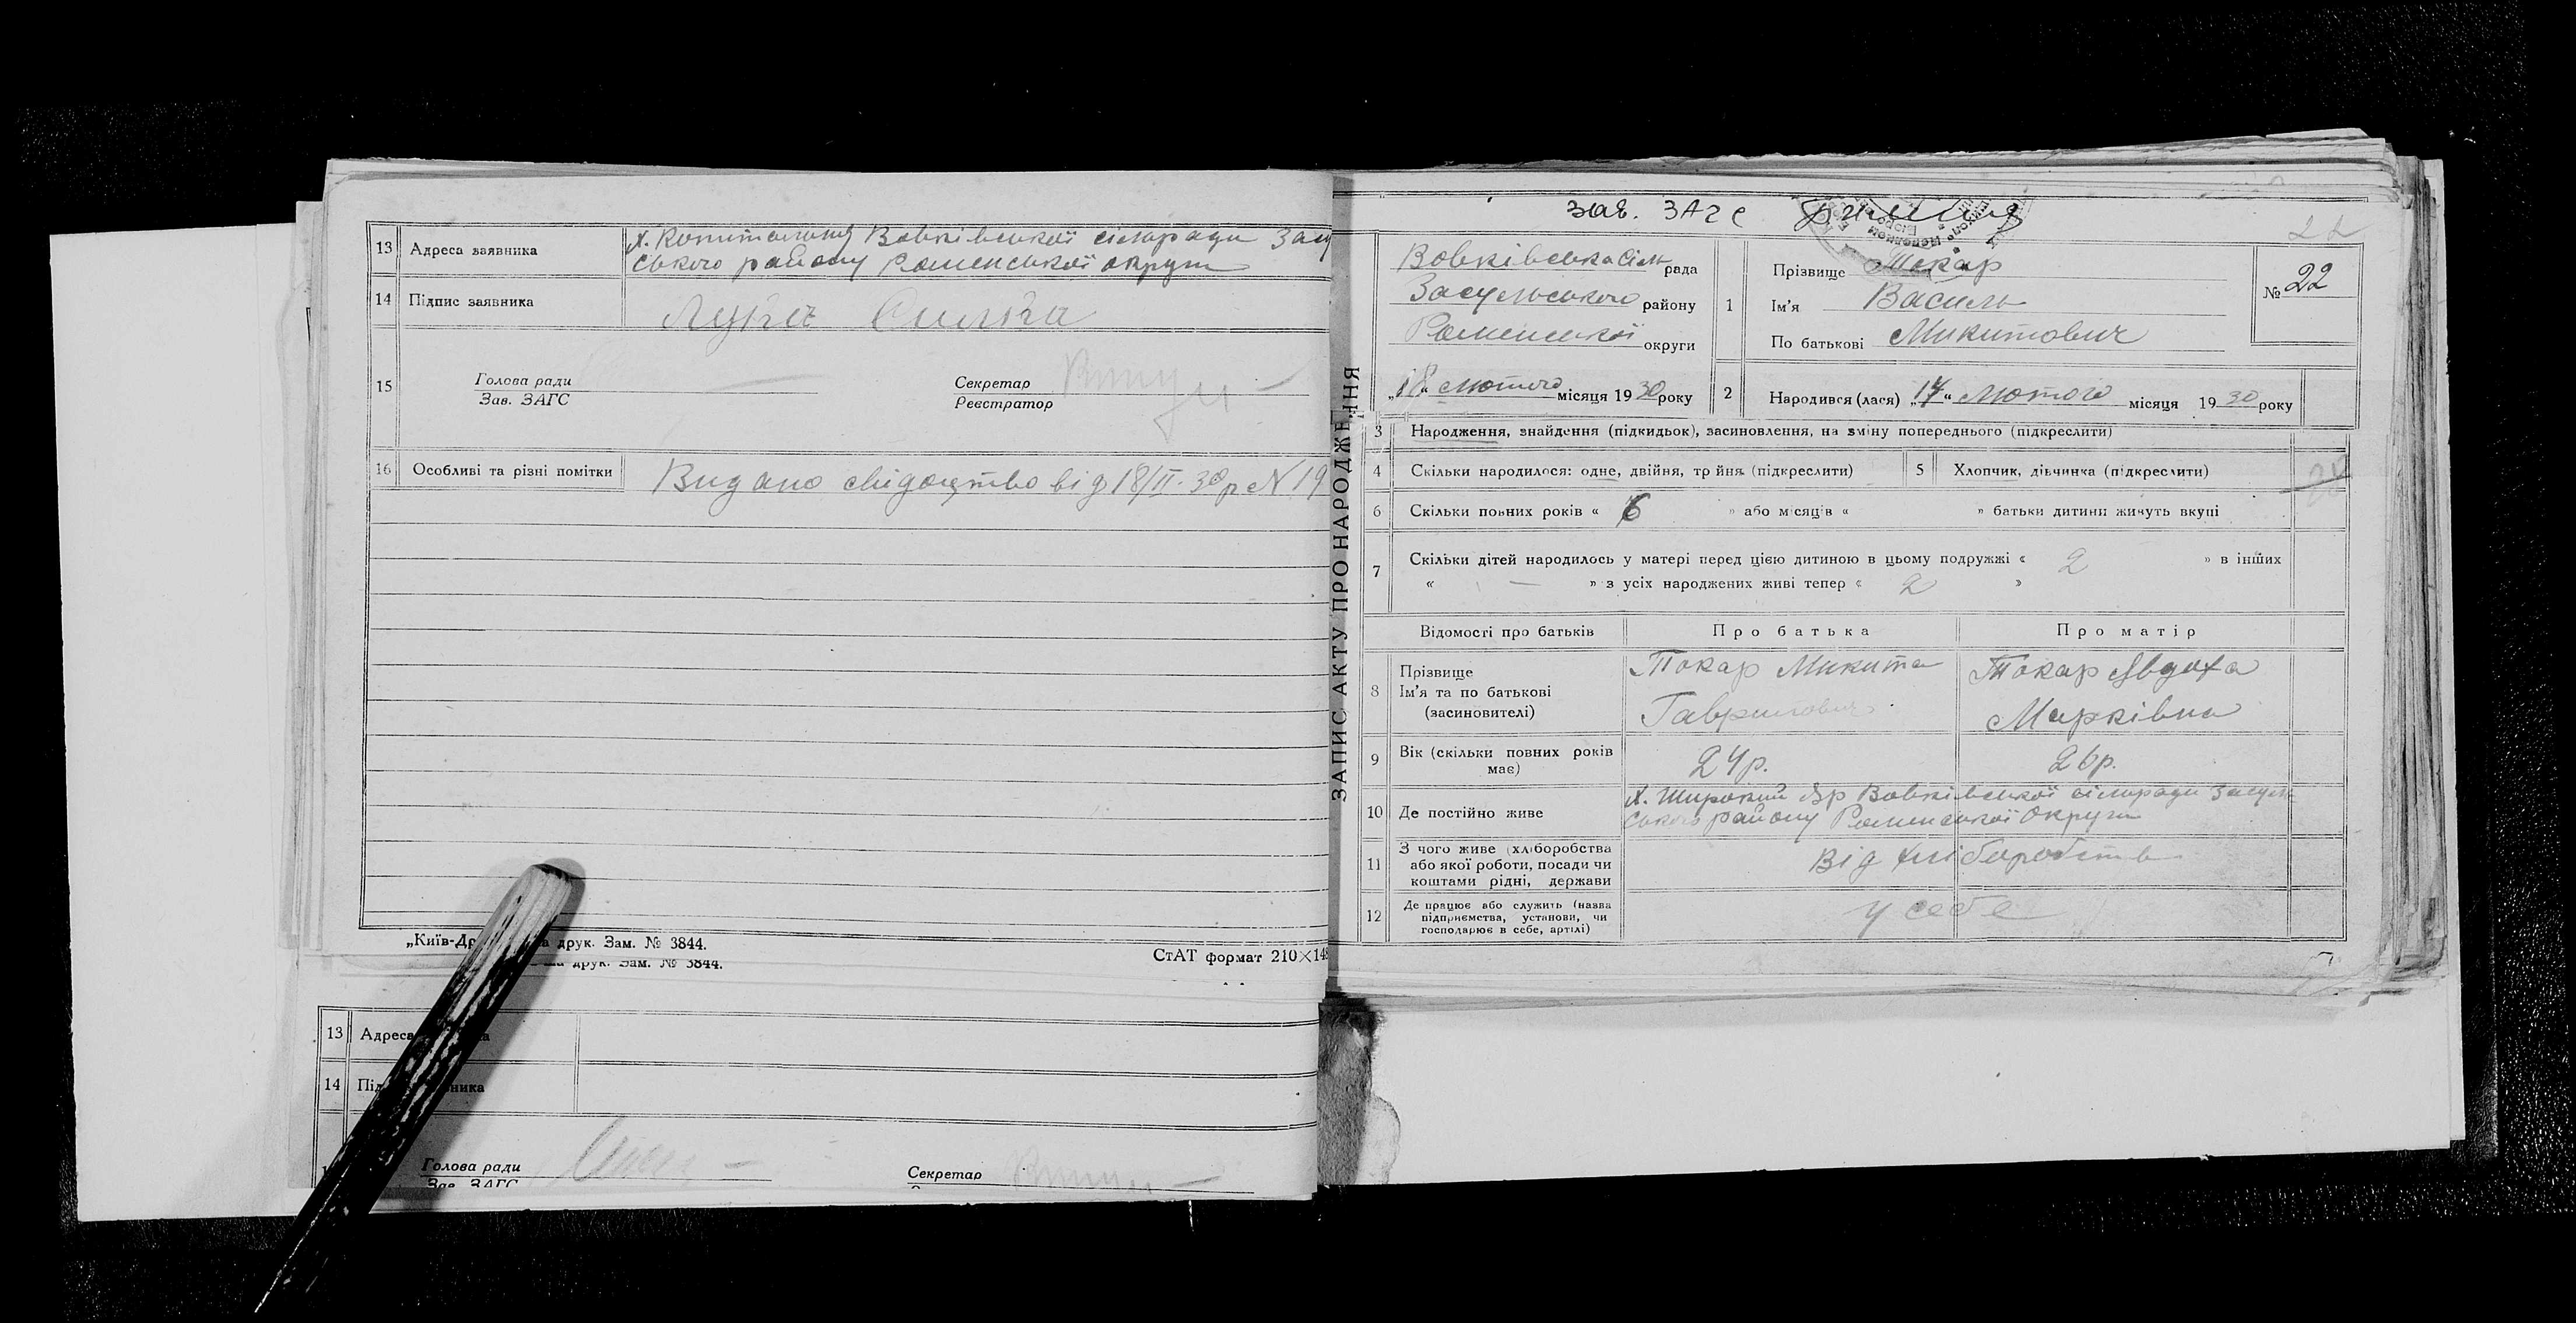 13 Адреса заявника
х. Вовківської сільради Засу
ського району Роменської округи
14 Підпис заявника
Лука
15 Голова ради
Зав. ЗАГС
Секретар
Реєстратор
16 Особливі та різні помітки
Видано свідоцтво від 18/II-30р N 19
„Київ-Др друк. Зам. № 3844.
СтАТ формат 210×148
друк. Зам. № 3844.
13 Адреса
14
Голова ради
Зав. ЗАГС
Секретар
ЗАПИС АКТУ ПРО НАРОДЖЕННЯ
зав. ЗАГС
22
Вовківська Сіль рада
Засульського району
Роменської округи
„18“ лютого місяця 1930 року
1
Прізвище Токар
Ім'я Василь
По батькові Микитович
№ 22
2 Народився (лася) „17“ Лютого місяця 1930 року
3 Народження, знайдення (підкидьок), засиновлення, на зміну попереднього (підкреслити)
4 Скільки народилося: одне, двійня, трійня (підкреслити)
5 Хлопчик, дівчинка (підкреслити)
6 Скільки повних років « 6 » або місяців « » батьки дитини живуть вкупі
7 Скільки дітей народилось у матері перед цією дитиною в цьому подружжі « 2 » в інших
« — » з усіх народжених живі тепер « 2 »
Відомості про батьків
Про батька
Про матір
8 Прізвище
Ім'я та по батькові
(засиновителі)
Токар Микита
Гаврилович
Токар Явдоха
Марківна
9 Вік (скільки повних років
має)
24р.
26р.
10 Де постійно живе
х. Широкий Яр Вовківської сільради Засуль
ського району Роменської Округи
11 З чого живе (хліборобства
або якої роботи, посади чи
коштами рідні, держави
Від хліборобства
12 Де працює або служить (назва
підприємства, установи, чи
господарює в себе, артілі)
у себе